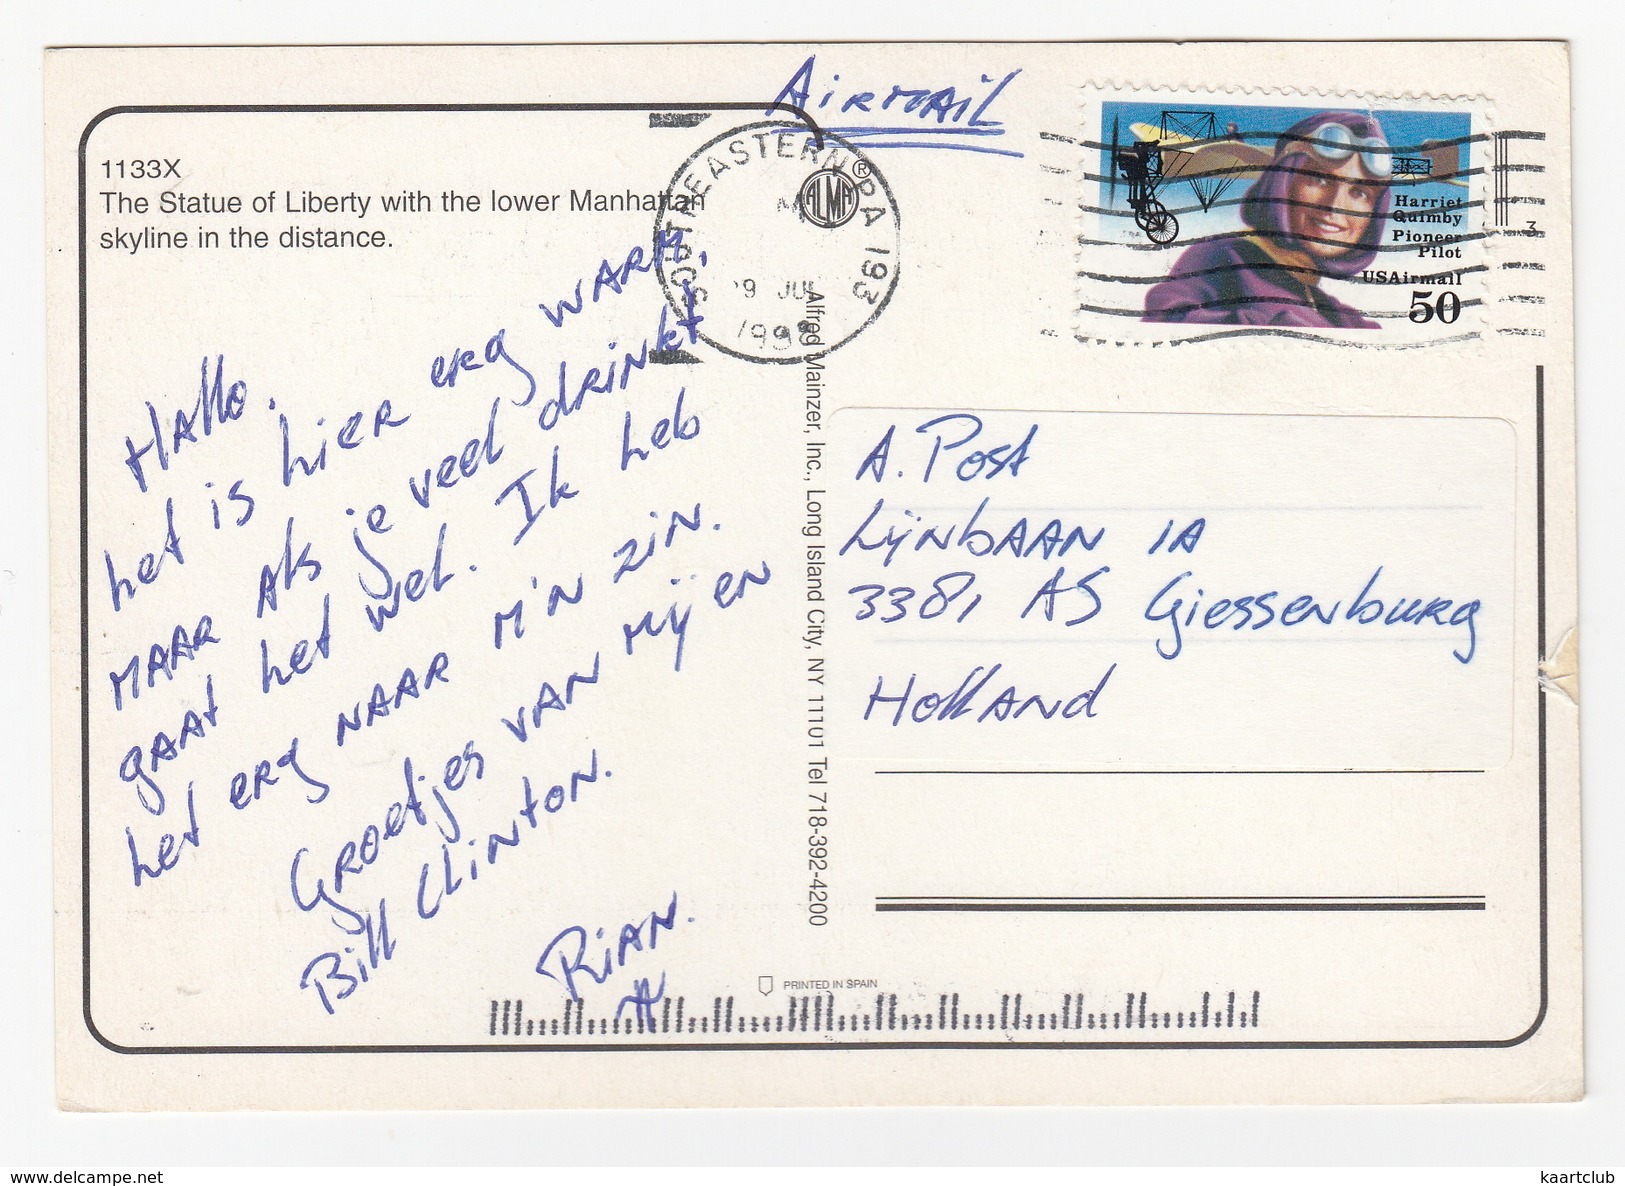 AiRMAiL
1133X
The Statue of Liberty with the lower Manhattan
skyline in the distance.
ALMA®
SOUTHEASTERN PA 193
JUL
1998
Harriet
Quimby
Pioneer
Pilot
USAirmail
50
3
Hallo.
het is hier erg warm,
maar als je veel drinkt
gaat het wel. Ik heb
het erg naar m'n zin.
Groetjes van mij en
Bill Clinton.
Rian.
Alfred Mainzer, Inc., Long Island City, NY 11101 Tel 718-392-4200
A. Post
Lijnbaan 1A
3381 AS Giessenburg
Holland
PRINTED IN SPAIN
delcampe.net
kaartclub